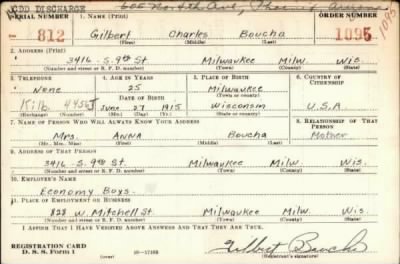 CDD DISCHARGE 605 North 4th Ave, Phoenix Arizona
SERIAL NUMBER 1. NAME (Print) ORDER NUMBER
812 Gilbert Charles Boucha 1095 1095
(First) (Middle) (Last)
2. ADDRESS (Print)
3416 S. 9th St Milwaukee Milw. Wis.
(Number and street or R. F. D. number) (Town) (County) (State)
3. TELEPHONE 4. AGE IN YEARS 5. PLACE OF BIRTH 6. COUNTRY OF CITIZENSHIP
None 25 Milwaukee
DATE OF BIRTH (Town or county)
Kilb. 4456J June 27 1915 Wisconsin U.S.A
(Exchange) (Number) (Mo.) (Day) (Yr.) (State or country)
7. NAME OF PERSON WHO WILL ALWAYS KNOW YOUR ADDRESS 8. RELATIONSHIP OF THAT PERSON
Mrs. ANNA Boucha Mother
(Mr., Mrs., Miss) (First) (Middle) (Last)
9. ADDRESS OF THAT PERSON
3416 S. 9th St Milwaukee Milw. Wis.
(Number and street or R. F. D. number) (Town) (County) (State)
10. EMPLOYER'S NAME
Economy Boys.
11. PLACE OF EMPLOYMENT OR BUSINESS
828 W. Mitchell St. Milwaukee Milw. Wis.
(Number and street or R. F. D. number) (Town) (County) (State)
I AFFIRM THAT I HAVE VERIFIED ABOVE ANSWERS AND THAT THEY ARE TRUE.
REGISTRATION CARD
D. S. S. Form 1 16—17105 Gilbert Boucha
(Registrant's signature)